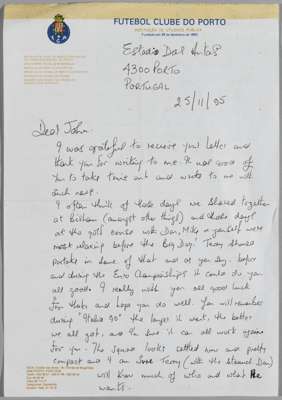 FUTEBOL CLUBE DO PORTO
INSTITUIÇÃO DE UTILIDADE PÚBLICA
Estadio Das Antas
4300 PORTO
PORTUGAL
25/11/95
Dear John.
I was grateful to receive your letter and
thank you for writing to me. It was good of
you to take time out and write to me with
such news.
I often think of those days we shared together
at Bisham (amongst other things) and those days
at the golf course with Don, Mike & yourself were
most relaxing before the Big Day! Terry should
partake in some of that and as you say, before
and during the Euro Championships it could do you
all good. I really wish you all good luck
for that and hope you do well. You will remember
during "Italia 90" the longer it went, the better
we all got, and I'm sure it can all work again
for you. The squad looks settled now and pretty
compact and I am sure Terry (with the
will know much of who and what he
wants.